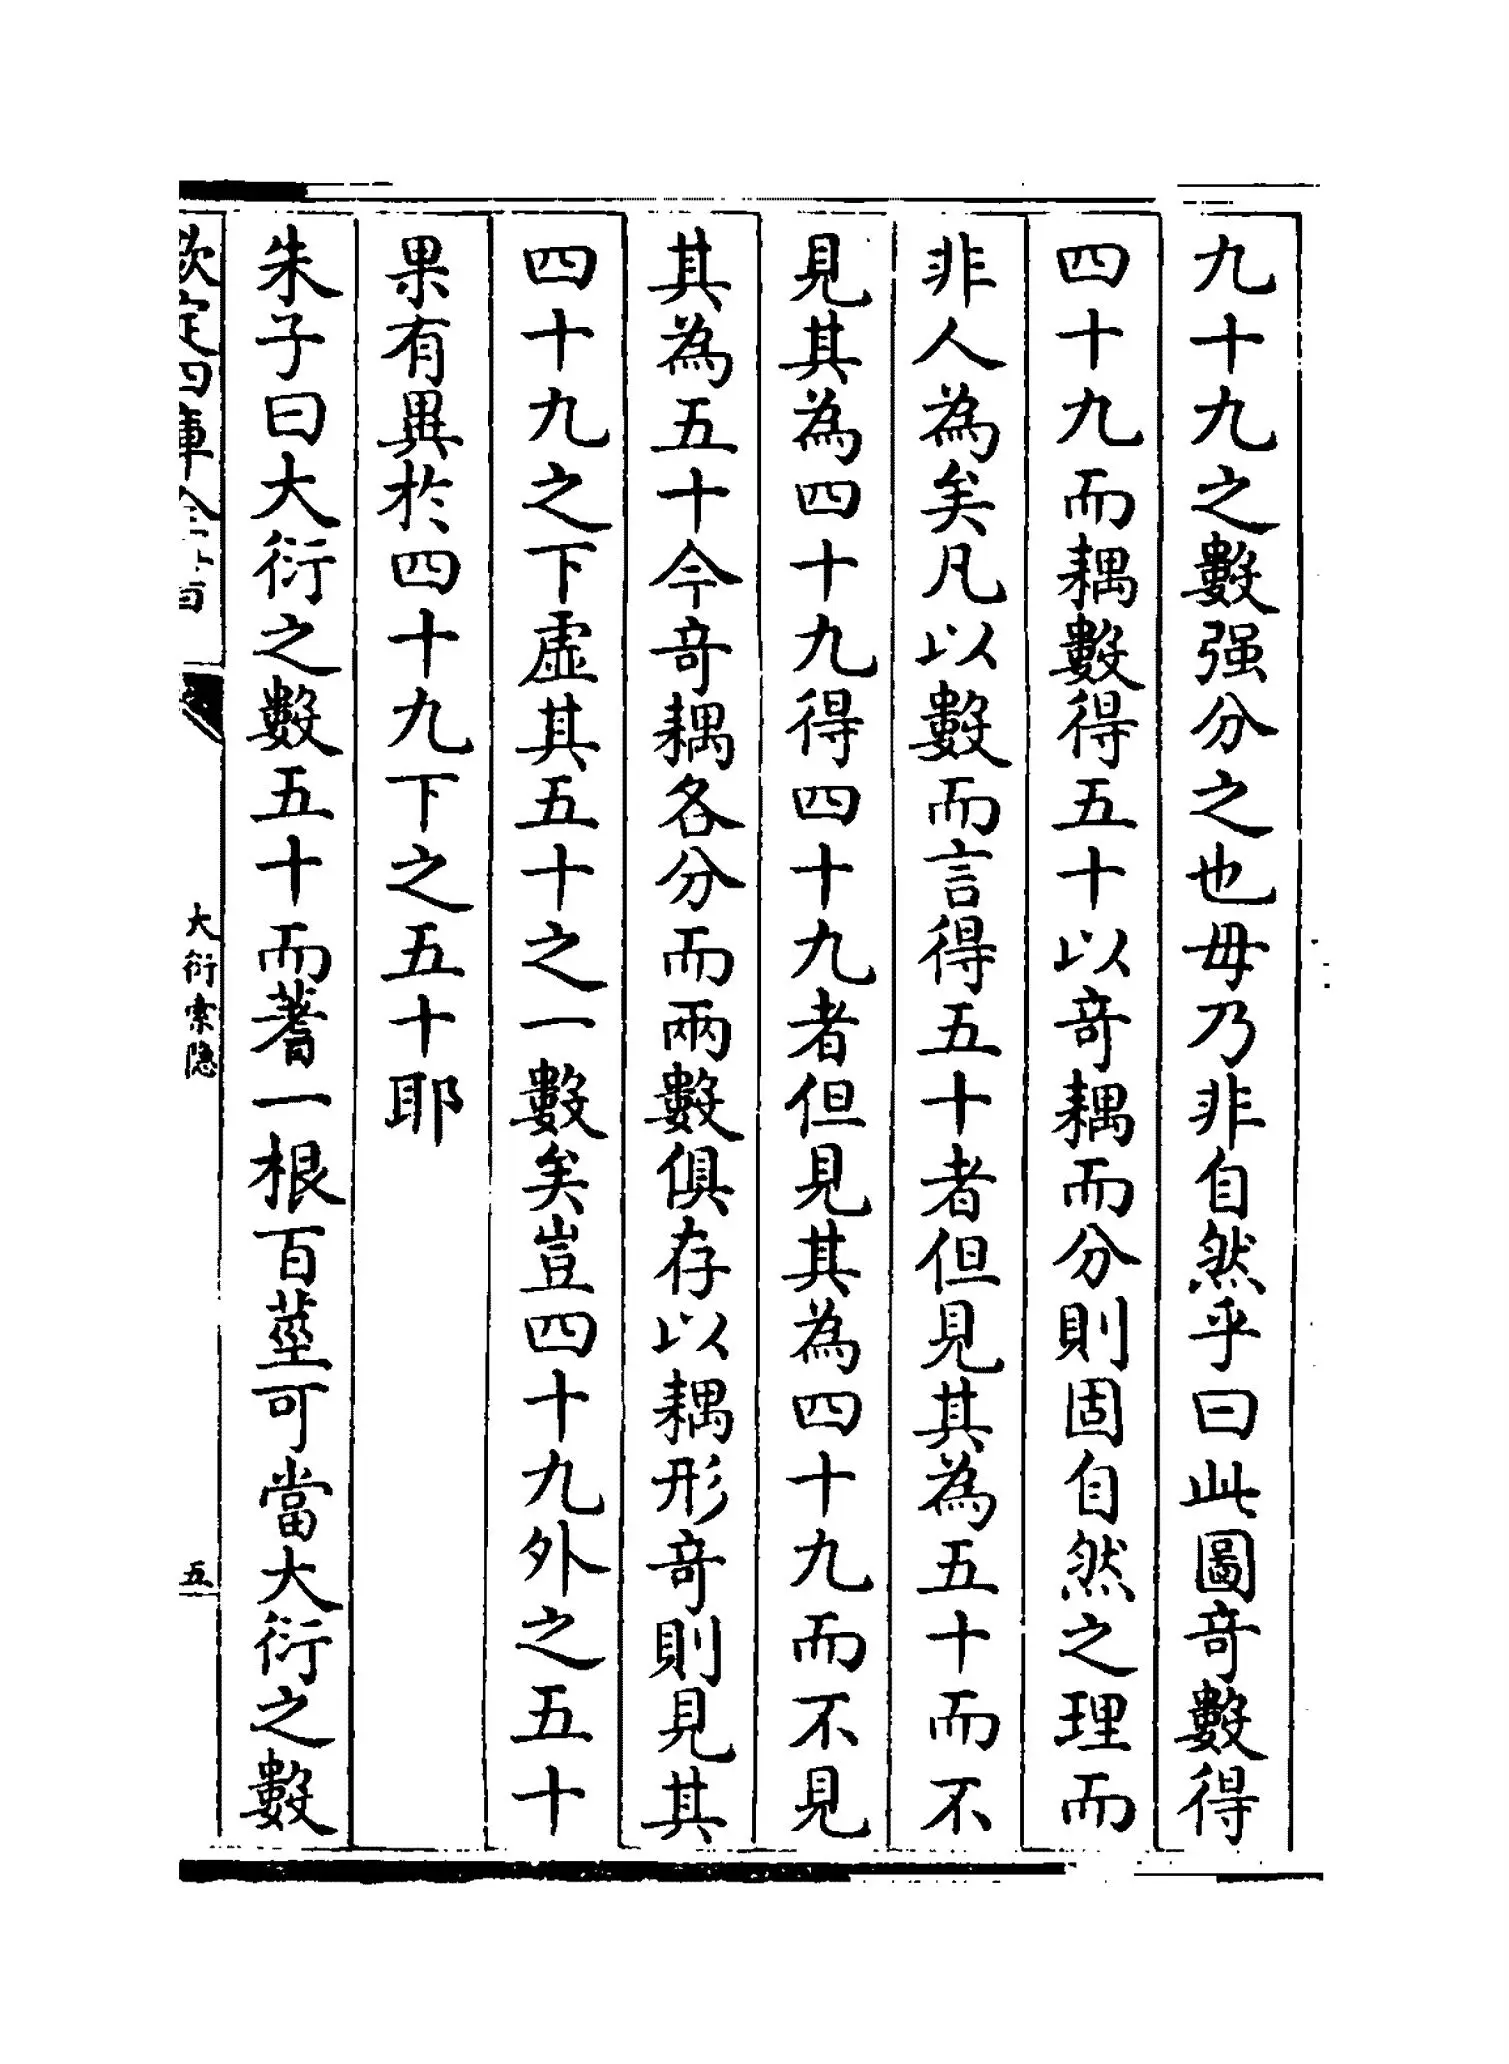 九十九之數强分之也毋乃非自然乎曰此圖奇數得
四十九而耦數得五十以奇耦而分則固自然之理而
非人為矣凡以數而言得五十者但見其為五十而不
見其為四十九得四十九者但見其為四十九而不見
其為五十今奇耦各分而兩數俱存以耦形奇則見其
四十九之下虛其五十之一數矣豈四十九外之五十
果有異於四十九下之五十耶
朱子曰大衍之數五十而蓍一根百莖可當大衍之數
欽定四庫全書
大衍索隱
五